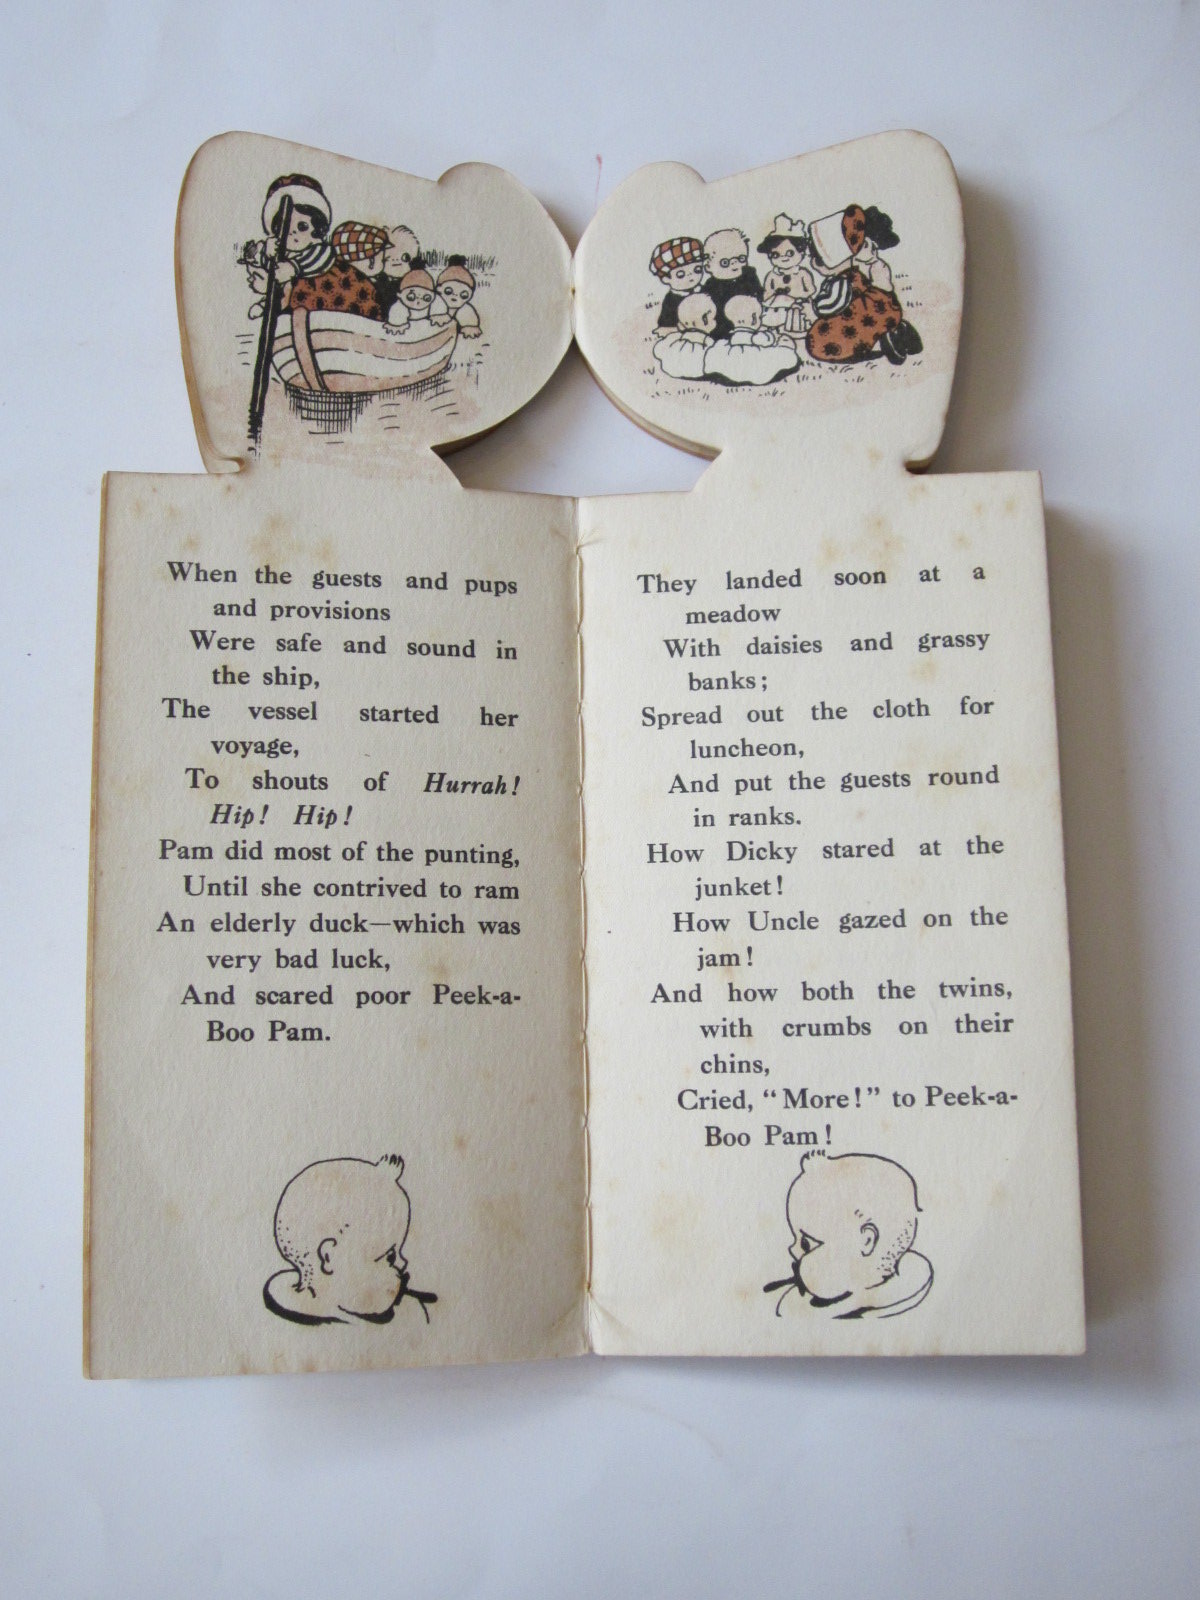 When the guests and pups
and provisions
Were safe and sound in
the ship,
The vessel started her
voyage,
To shouts of Hurrah!
Hip! Hip!
Pam did most of the punting,
Until she contrived to ram
An elderly duck—which was
very bad luck,
And scared poor Peek-a-
Boo Pam.
They landed soon at a
meadow
With daisies and grassy
banks;
Spread out the cloth for
luncheon,
And put the guests round
in ranks.
How Dicky stared at the
junket!
How Uncle gazed on the
jam!
And how both the twins,
with crumbs on their
chins,
Cried, “More!” to Peek-a-
Boo Pam!